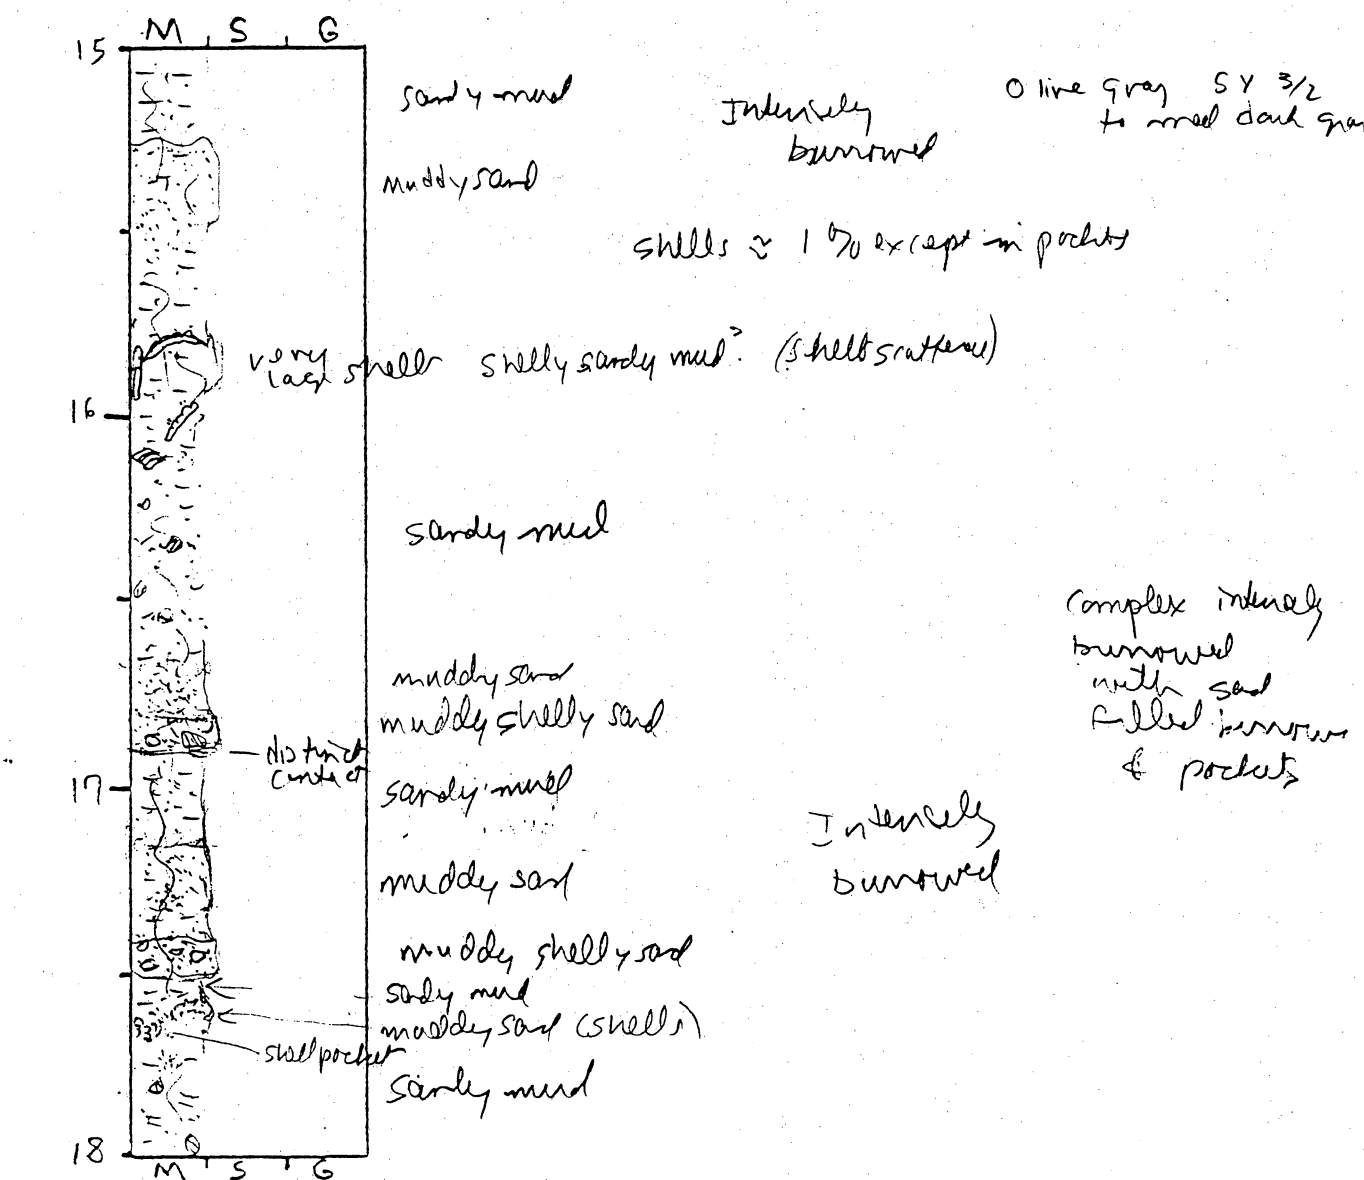 M S G
15
sandy mud
Intensely
burrowed
Olive Gray 5Y 3/2
to med dark gray
muddy sand
shells ≈ 1% except in pockets
very
large shell
shelly sandy mud? (shells scattered)
16
sandy mud
Complex intensely
burrowed
with sand
filled burrows
& pockets
muddy sand
muddy shelly sand
distinct
contact
17
sandy mud
Intensely
burrowed
muddy sand
muddy shelly sand
sandy mud
muddy sand (shells)
shell pocket
sandy mud
18
M S G